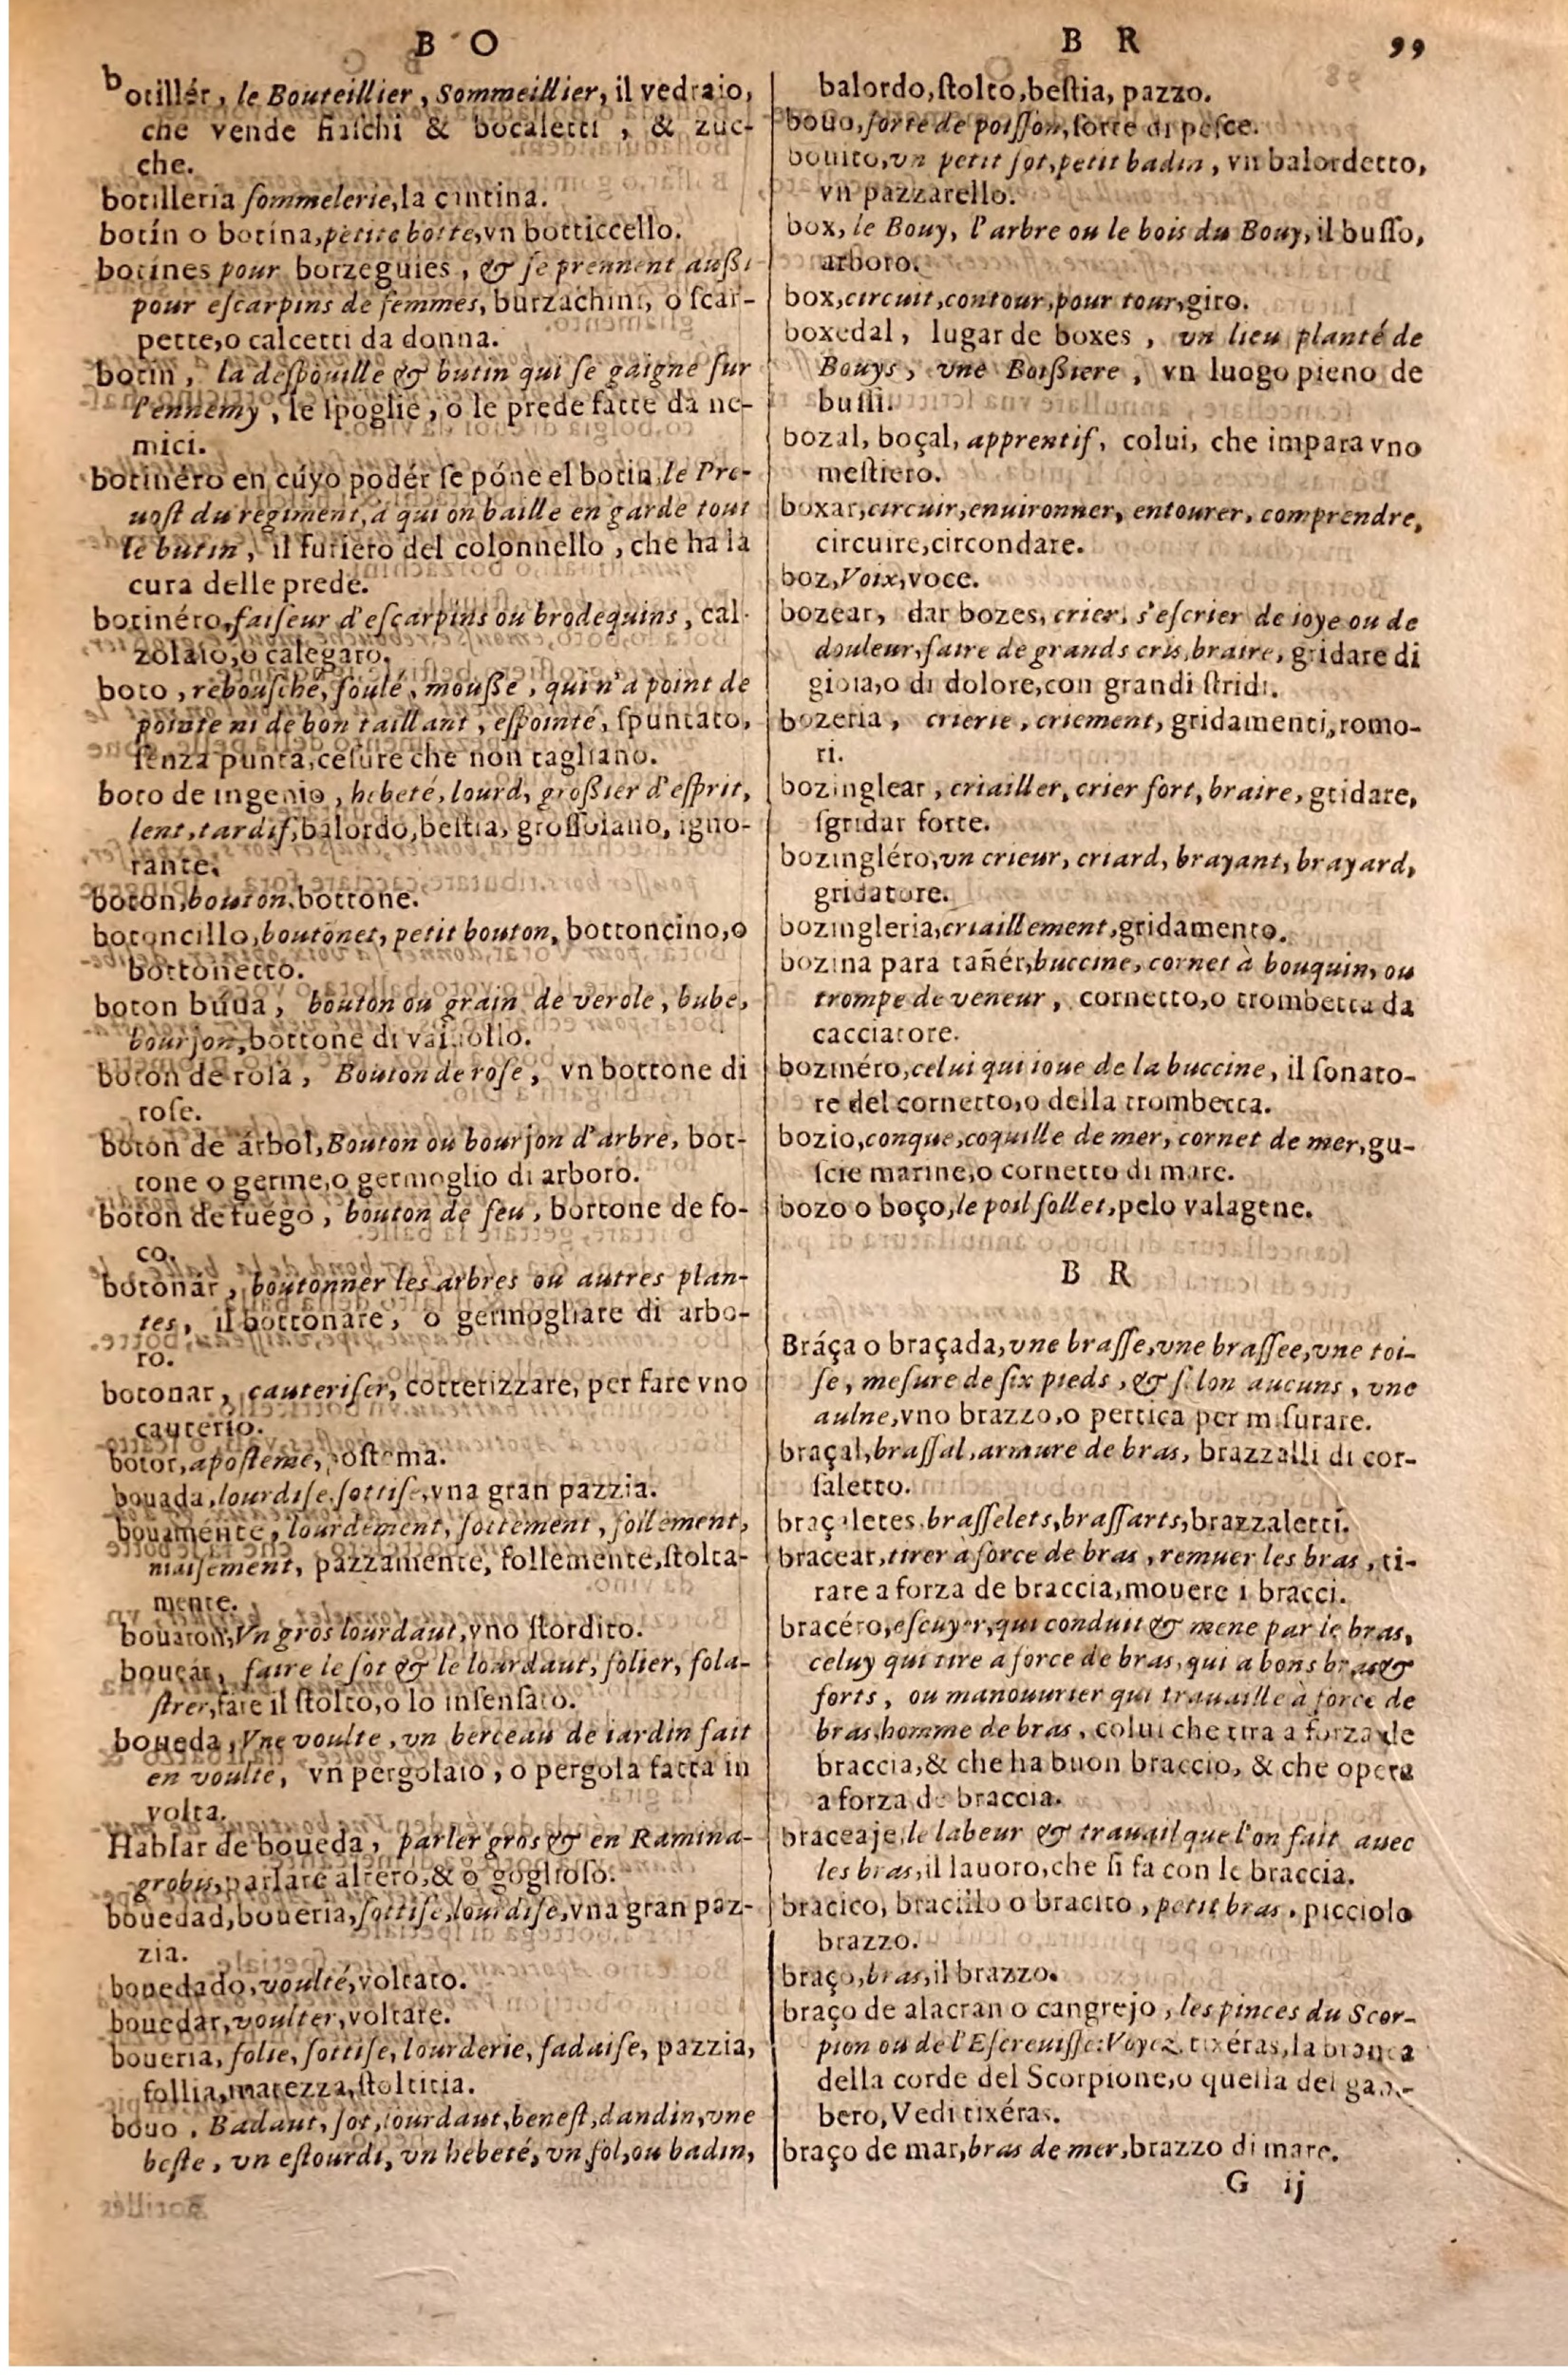 B O
botillér, le Bouteillier, Sommeillier, il vedraio,
che vende fiaſchi & bocaletti, & zuc-
che.
botilleria ſommelerie, la cantina.
botín o botina, petite botte, vn botticcello.
botines pour borzeguies, & ſe prennent außi
pour eſcarpins de femmes, burzachini, o ſcar-
pette, o calcetti da donna.
botin, la deſpouille & butin qui ſe gaigne ſur
l'ennemy, le ſpoglie, o le prede fatte da ne-
mici.
botinéro en cúyo podér ſe póne el botin, le Pre-
uoſt du regiment, à qui on baille en garde tout
le butin, il furiero del colonnello, che ha la
cura delle prede.
botinéro, faiſeur d'eſcarpins ou brodequins, cal-
zolaio, o calegaro.
boto, rebouſché, ſoulé, mouße, qui n'a point de
pointe ni de bon taillant, eſpointé, ſpuntato,
ſenza punta, ceſure che non tagliano.
boto de ingenio, hebeté, lourd, großier d'eſprit,
lent, tardif, balordo, beſtia, groſſolano, igno-
rante.
boton, bouton, bottone.
botoncillo, boutonet, petit bouton, bottoncino, o
bottonetto.
boton búua, bouton ou grain de verole, bube,
bourjon, bottone di vaiuollo.
boton de roſa, Bouton de roſe, vn bottone di
roſe.
boton de árbol, Bouton ou bourjon d'arbre, bot-
tone o germe, o germoglio di arboro.
boton de fuégo, bouton de feu, bottone de fo-
co.
botonár, boutonner les arbres ou autres plan-
tes, il bottonare, o germogliare di arbo-
ro.
botonar, cauteriſer, cotterizzare, per fare vno
cauterio.
botor, apoſteme, poſtema.
bouada, lourdiſe, ſottiſe, vna gran pazzia.
bouaménte, lourdement, ſottement, follement,
niaiſement, pazzamente, follemente, ſtolta-
mente.
bouaron, Vn gros lourdaut, vno ſtordito.
boueár, faire le ſot & le lourdaut, folier, fola-
ſtrer, fare il ſtolto, o lo inſenſato.
boueda, Vne voulte, vn berceau de iardin fait
en voulte, vn pergolaio, o pergola fatta in
volta.
Hablar de boueda, parler gros & en Ramina-
grobis, parlare altero, & o goglioſo.
bouedad, boueria, ſottiſe, lourdiſe, vna gran paz-
zia.
bouedado, voulté, voltato.
bouedar, voulter, voltare.
boueria, folie, ſottiſe, lourderie, fadaiſe, pazzia,
follia, matezza, ſtoltitia.
bouo, Badaut, ſot, lourdaut, beneſt, dandin, vne
beſte, vn eſtourdi, vn hebeté, vn fol, ou badin,
B R 99
balordo, ſtolto, beſtia, pazzo.
bouo, ſorte de poiſſon, ſorte di peſce.
bouito, vn petit ſot, petit badin, vn balordetto,
vn pazzarello.
box, le Bouy, l'arbre ou le bois du Bouy, il buſſo,
arboro.
box, circuit, contour, pour tour, giro.
boxedal, lugar de boxes, vn lieu planté de
Bouys, vne Boißiere, vn luogo pieno de
buſſi.
bozal, boçal, apprentif, colui, che impara vno
meſtiero.
boxar, circuir, enuironner, entourer, comprendre,
circuire, circondare.
boz, Voix, voce.
bozear, dar bozes, crier, s'eſcrier de ioye ou de
douleur, faire de grands cris, braire, gridare di
gioia, o di dolore, con grandi ſtridi.
bozeria, crierie, criement, gridamenti, romo-
ri.
bozinglear, criailler, crier fort, braire, gridare,
ſgridar forte.
bozingléro, vn crieur, criard, brayant, brayard,
gridatore.
bozingleria, criaillement, gridamento.
bozina para tañér, buccine, cornet à bouquin, ou
trompe de veneur, cornetto, o trombetta da
cacciatore.
bozinéro, celui qui ioue de la buccine, il ſonato-
re del cornetto, o della trombetta.
bozio, conque, coquille de mer, cornet de mer, gu-
ſcie marine, o cornetto di mare.
bozo o boço, le poil follet, pelo valagene.
B R
Bráça o braçada, vne braſſe, vne braſſee, vne toi-
ſe, meſure de ſix pieds, & ſelon aucuns, vne
aulne, vno brazzo, o pertica per miſurare.
braçal, braſſal, armure de bras, brazzalli di cor-
ſaletto.
braçaletes, braſſelets, braſſarts, brazzaletti.
bracear, tirer a force de bras, remuer les bras, ti-
rare a forza de braccia, mouere i bracci.
bracéro, eſcuyer, qui conduit & mene par le bras,
celuy qui tire a force de bras, qui a bons bras &
forts, ou manouurier qui trauaille à force de
bras, homme de bras, colui che tira a forza de
braccia, & che ha buon braccio, & che opera
a forza de braccia.
braceaje, le labeur & trauail que l'on fait auec
les bras, il lauoro, che ſi fa con le braccia.
bracico, bracillo o bracito, petit bras, picciolo
brazzo.
braço, bras, il brazzo.
braço de alacran o cangrejo, les pinces du Scor-
pion ou de l'Eſcreuiſſe: Voyez tixéras, la branca
della corde del Scorpione, o quella del gam-
bero, Vedi tixéras.
braço de mar, bras de mer, brazzo di mare.
G ij